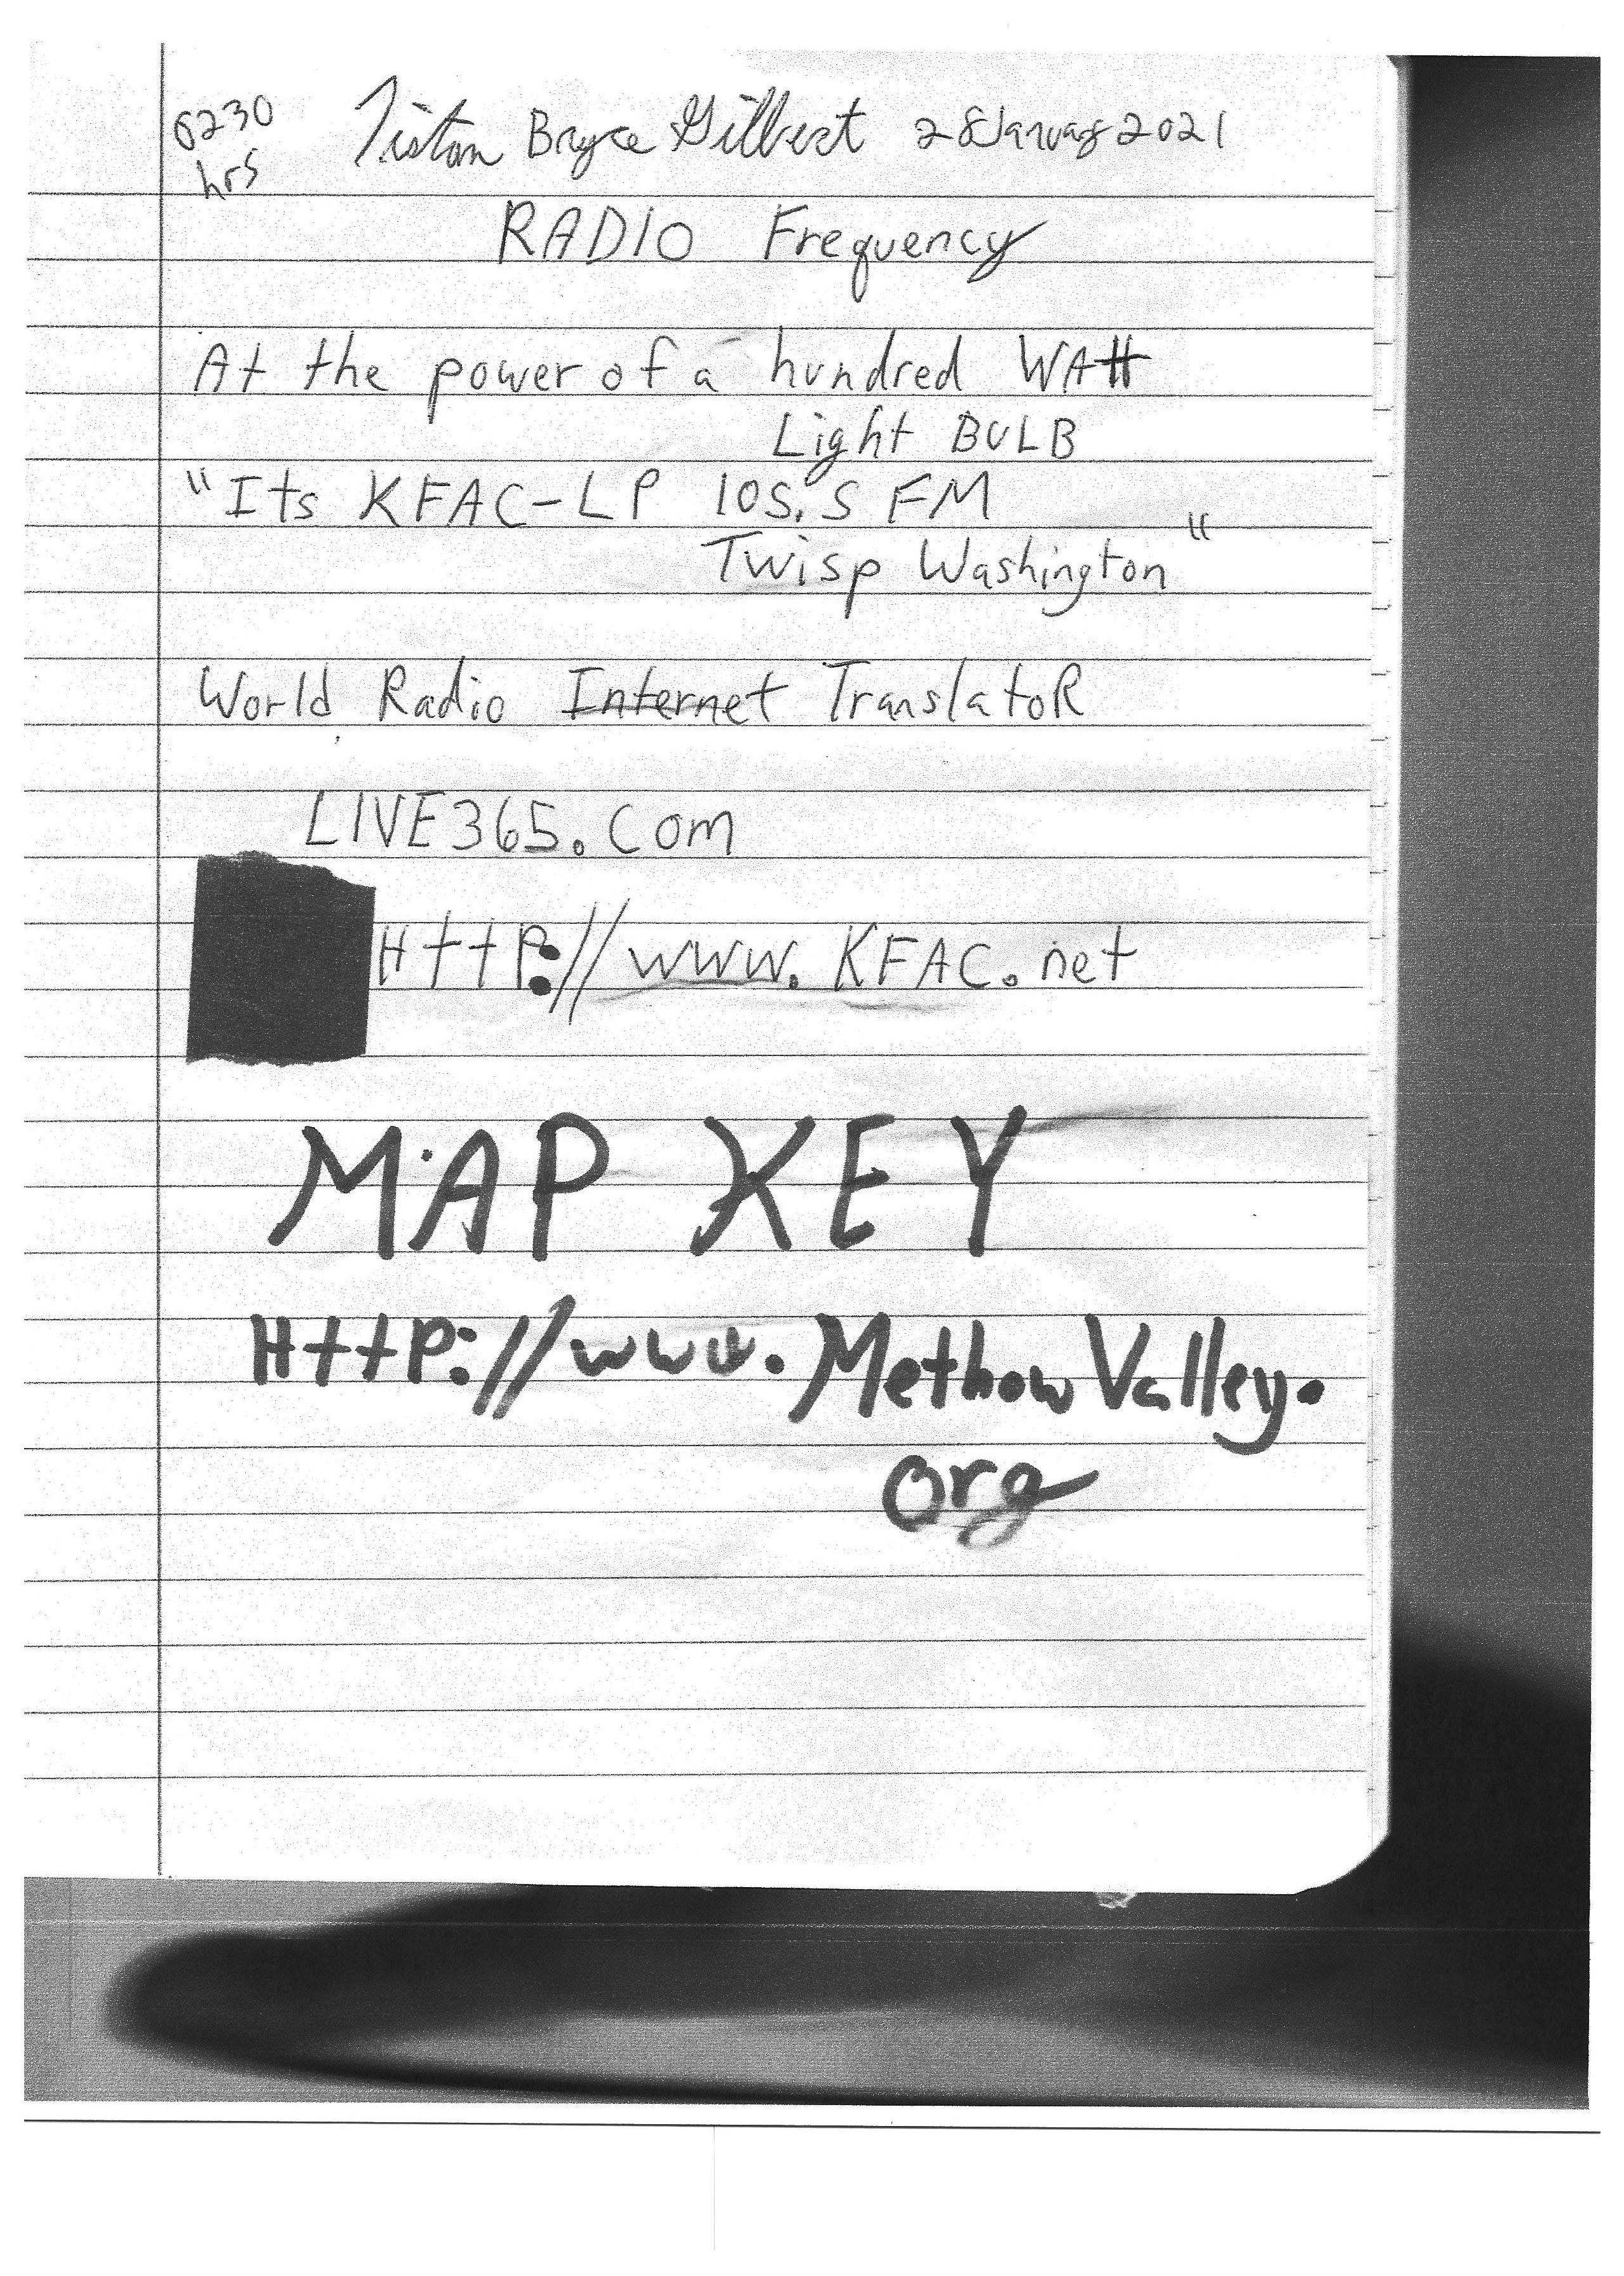 0230 hrs Tiston Bryce Gilbert 28 January 2021
RADIO Frequency
At the power of a hundred WAtt
Light BULB
"Its KFAC-LP 105.5 FM
Twisp Washington"
World Radio Internet TranslatoR
LIVE365.com
HttP://www.KFAC.net
MAP KEY
HttP://www.MethowValley.
org